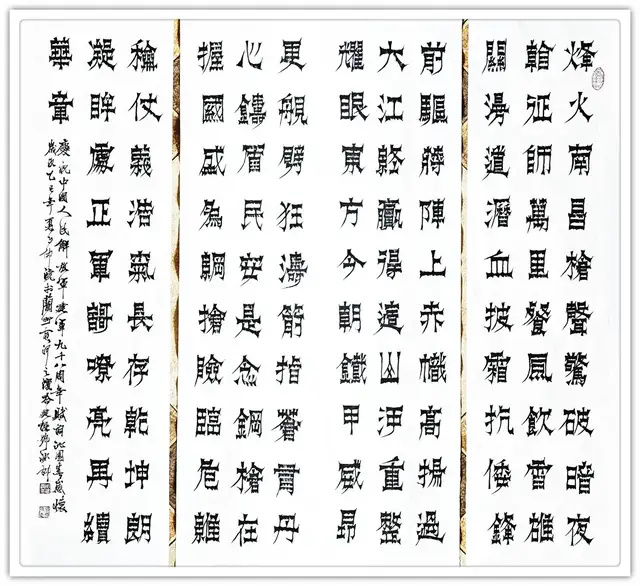 烽火南昌槍聲驚破暗夜
征師萬里餐風飲雪雄
關漫道血披霜抗倭鋒
前驅蔣陣上赤幟高揚過
大江贏得山河重整
耀眼東方今朝鐵甲威昂
更艦劈狂濤箭指蒼穹丹
心鑄盾民安是念鋼槍在
握國威為綱搶險臨危雖
仗義浩氣長存乾坤朗
凝眸處正軍號嘹亮再續
華章
慶祝中國人民解放軍建軍九十八周年賦詞沁園春感懷
歲次乙巳年夏